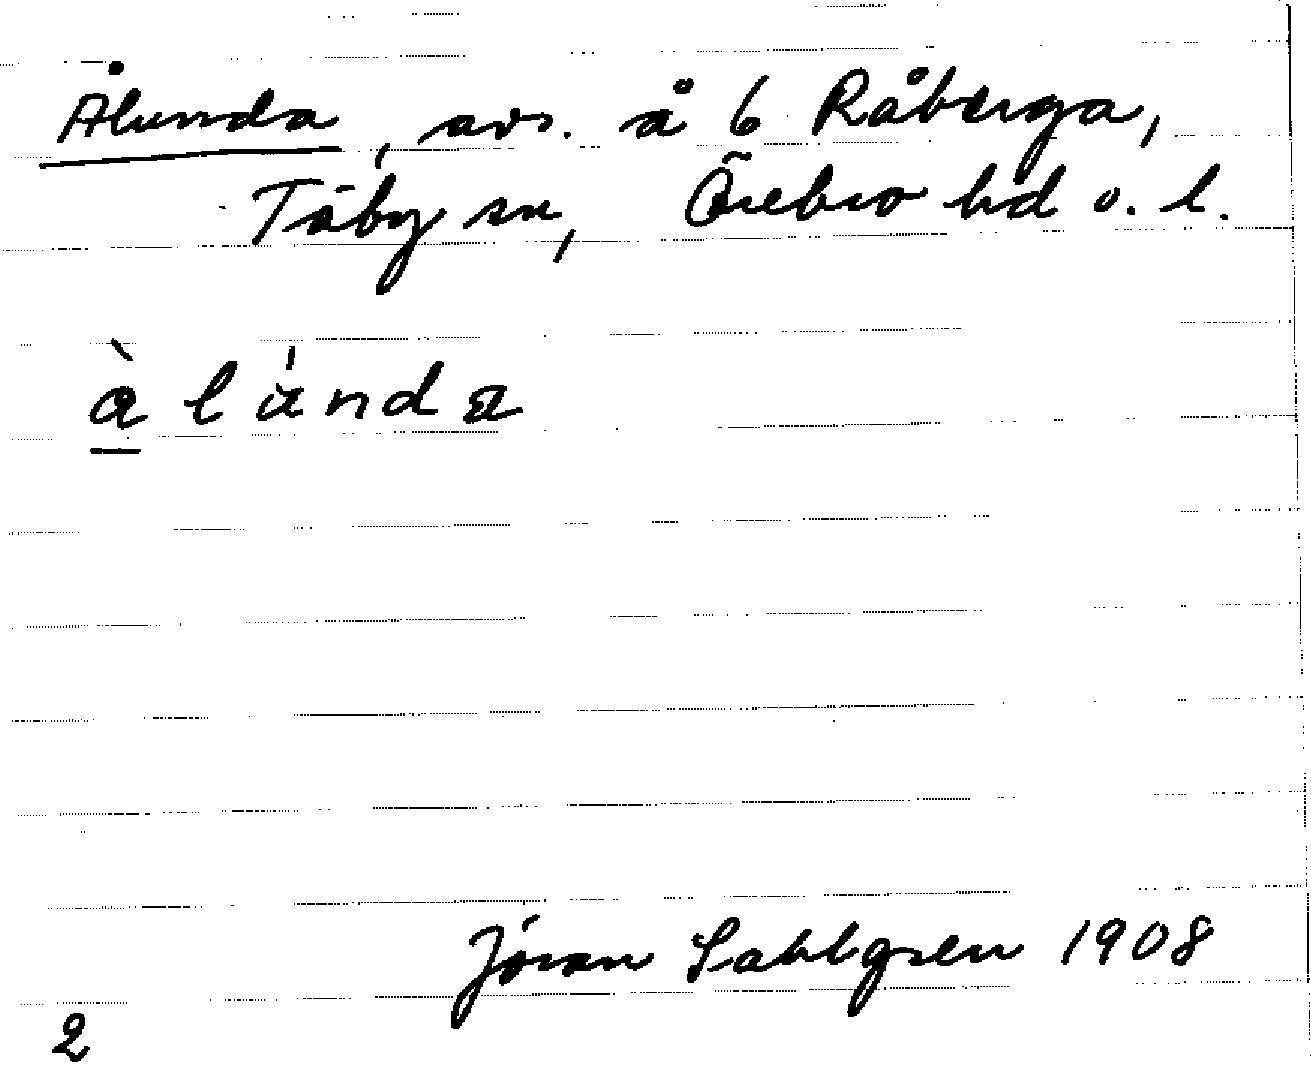 Ålunda, avs. å 6 Råberga,
Täby sn, Örebro hd o. l.
Jöran Sahlgren 1908
2